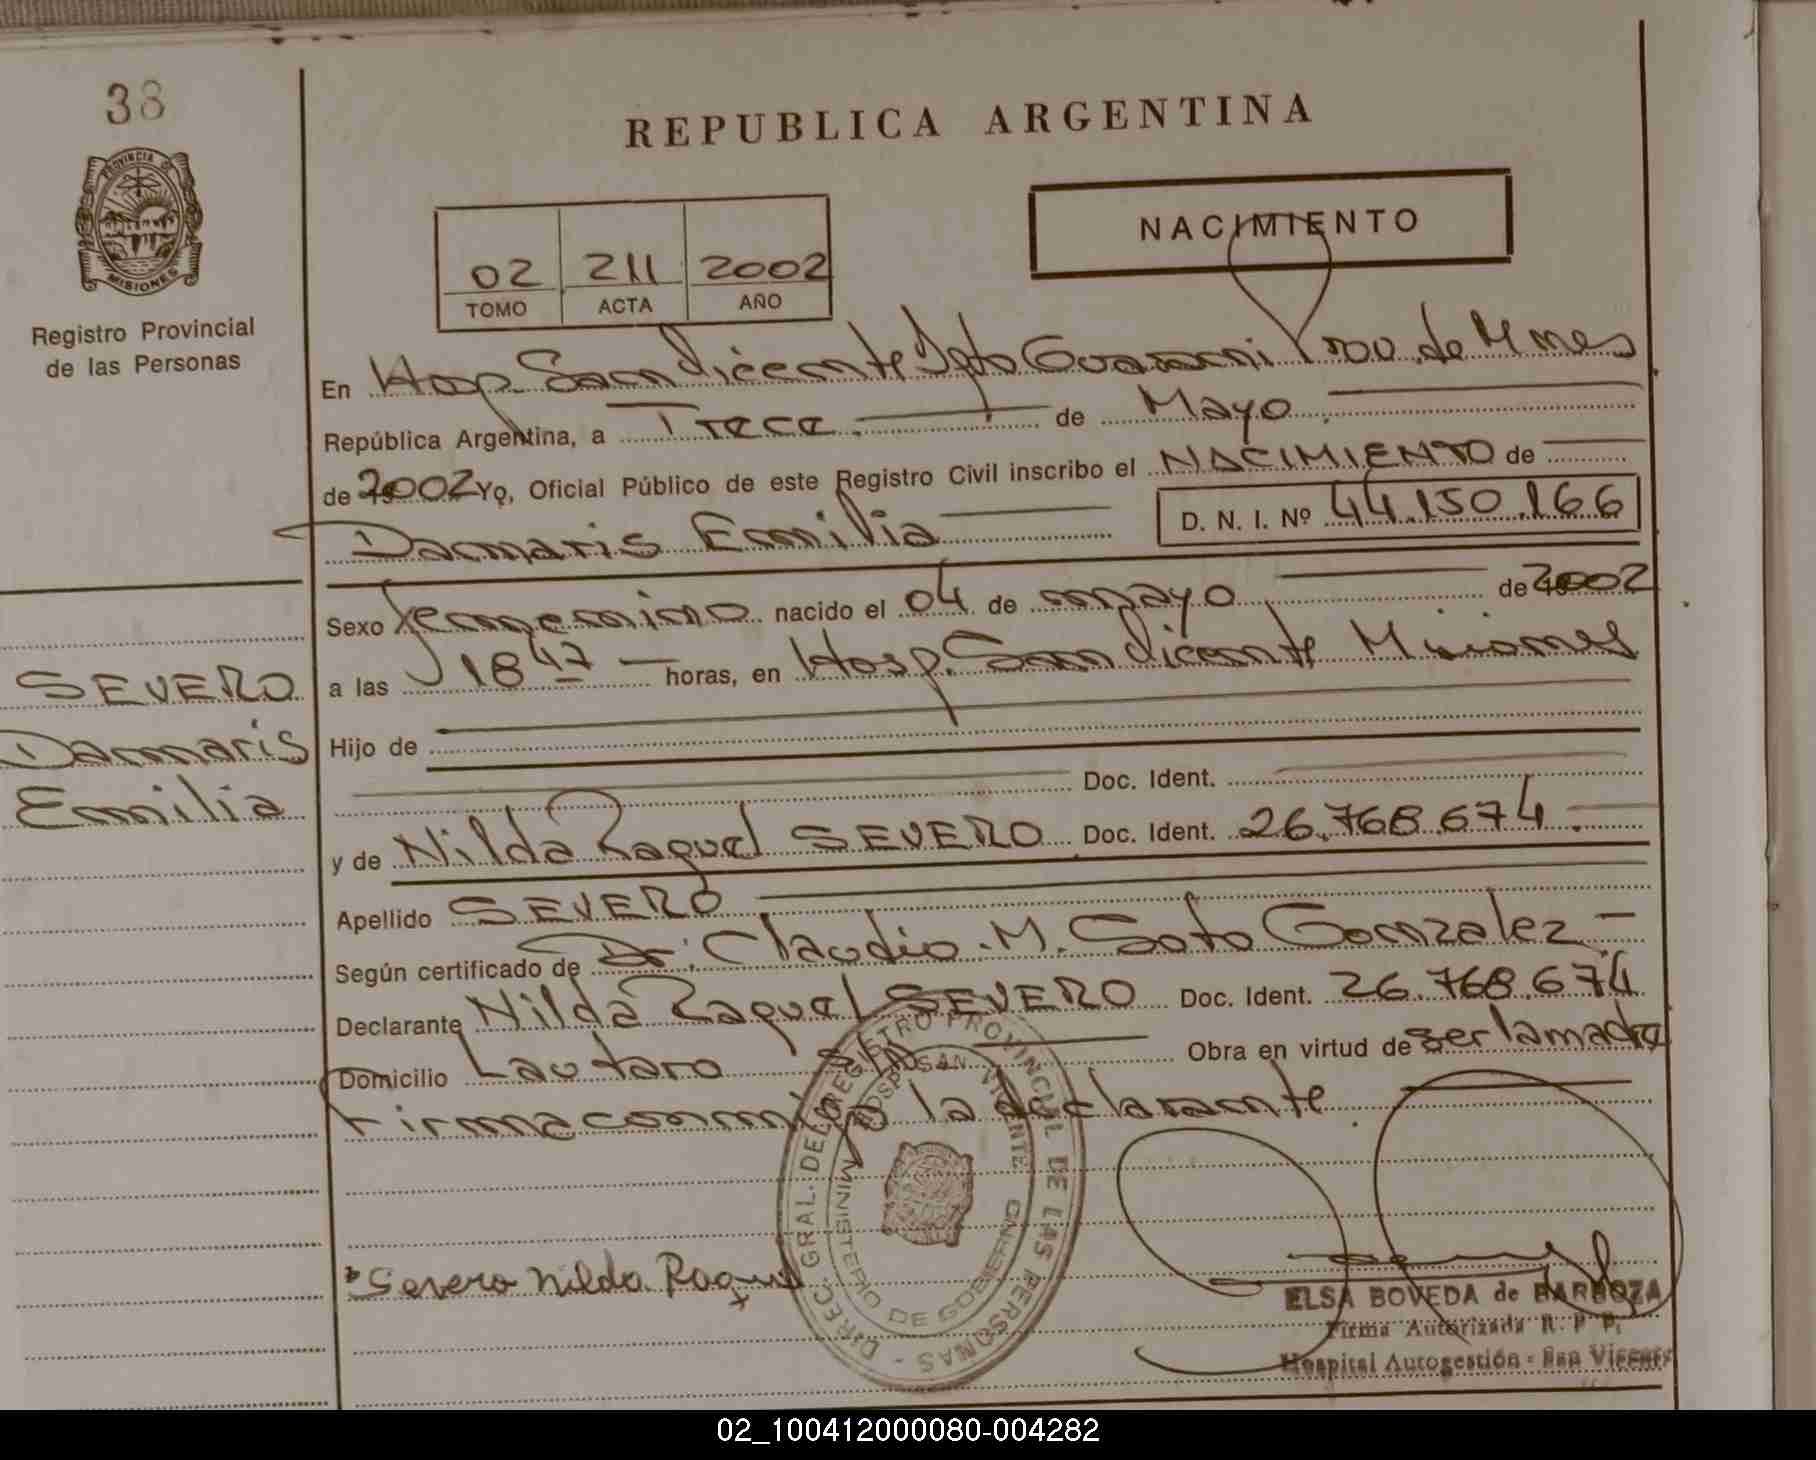 38
PROVINCIA DE
MISIONES
Registro Provincial
de las Personas
REPUBLICA ARGENTINA
NACIMIENTO
02 211 2002
TOMO ACTA AÑO
En Hosp. San Vicente Dpto Guarani Prov. de Mnes
República Argentina, a Trece de Mayo
de 2002 Yo, Oficial Público de este Registro Civil inscribo el NACIMIENTO de
Damaris Emilia D. N. I. Nº 44.150.166
Sexo femenino nacido el 04 de mayo de 2002
a las 18 47 horas, en Hosp. San Vicente Misiones
Hijo de
Doc. Ident.
y de Nilda Raquel SEVERO Doc. Ident. 26.768.674.
Apellido SEVERO
Según certificado de Dr. Claudio. M. Soto Gonzalez
Declarante Nilda Raquel SEVERO Doc. Ident. 26.768.674
Domicilio Lautaro S/N Obra en virtud de ser la madre
Firma conmigo la declarante.
SEVERO
Damaris
Emilia
Severo Nilda Raquel
DIREC. GRAL. DEL REGISTRO PROVINCIAL DE LAS PERSONAS -
HOSP. SAN VICENTE
MINISTERIO DE GOBIERNO
ELSA BOVEDA de BARBOZA
Firma Autorizada R. P. P.
Hospital Autogestión - San Vicente
02_100412000080-004282